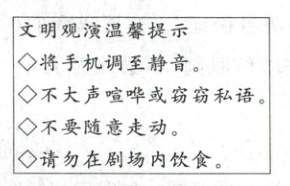 文明观演温馨提示
◇将手机调至静音。
◇不大声喧哗或窃窃私语。
◇不要随意走动。
◇请勿在剧场内饮食。